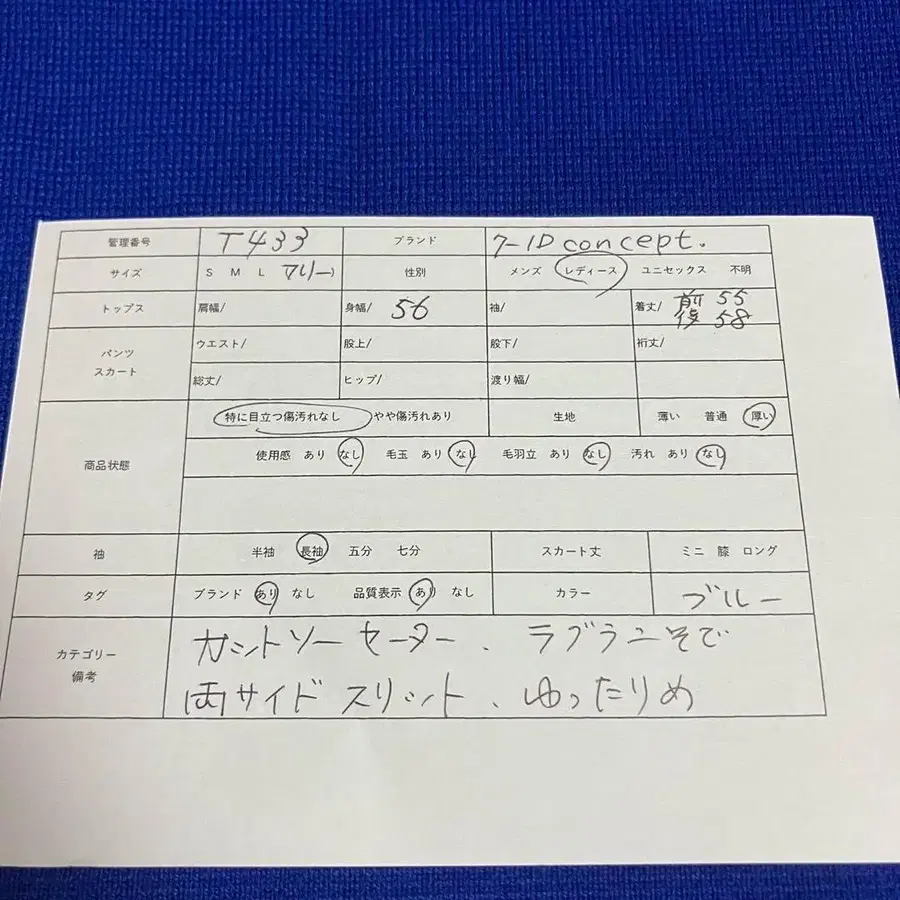 管理番号 T433 ブランド 7-ID concept.
サイズ S M L フリー) 性別 メンズ レディース ユニセックス 不明
トップス 肩幅/ 身幅/ 56 袖/ 着丈/ 前 55
後 58
パンツ
スカート
ウエスト/ 股上/ 股下/ 裄丈/
総丈/ ヒップ/ 渡り幅/
商品状態 特に目立つ傷汚れなし やや傷汚れあり 生地 薄い 普通 厚い
使用感 あり なし 毛玉 あり なし 毛羽立 あり なし 汚れ あり なし
袖 半袖 長袖 五分 七分 スカート丈 ミニ 膝 ロング
タグ ブランド あり なし 品質表示 あり なし カラー ブルー
カテゴリー
備考
カットソーセーター、ラグランそで
両サイドスリット、ゆったりめ